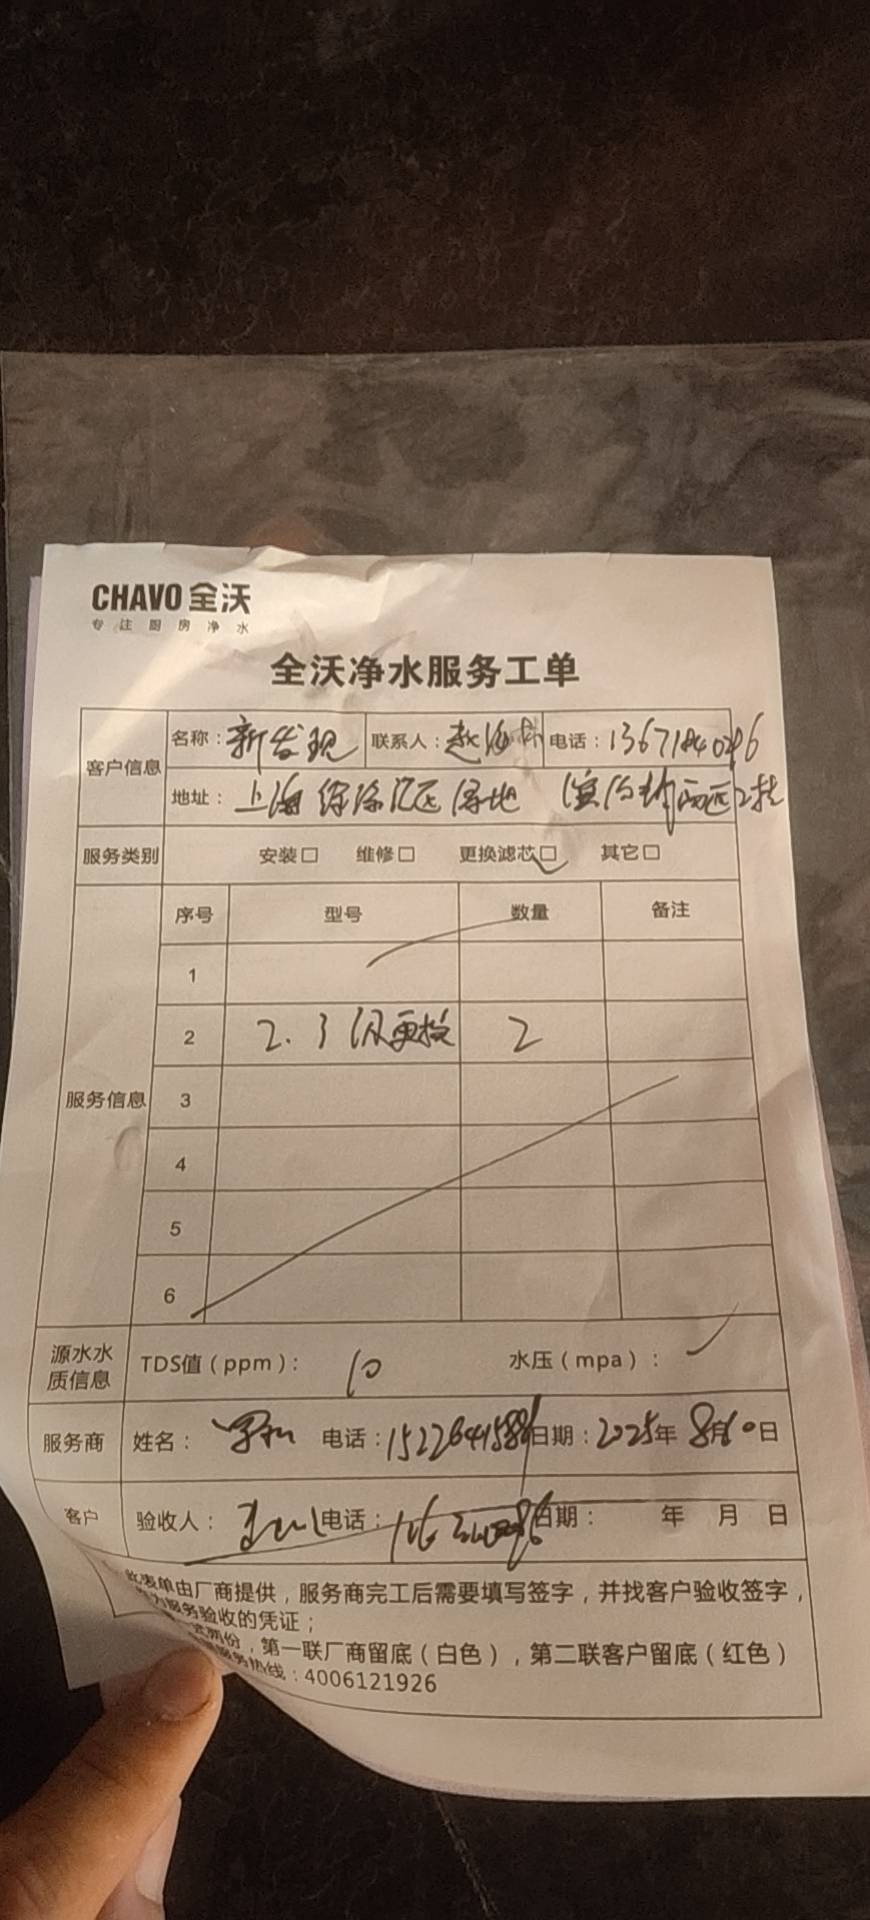 CHAVO 全沃
专注厨房净水
全沃净水服务工单
客户信息 名称：新发现 联系人：赵 电话：
地址：上海 徐 汇区 绿地
服务类别 安装□ 维修□ 更换滤芯□ 其它□
服务信息 序号 型号 数量 备注
1
2 2.3级更换 2
3
4
5
6
源水水质信息 TDS值（ppm）： 10 水压（mpa）：
服务商 姓名： 电话： 日期：2025年 8月10日
客户 验收人： 电话： 日期： 年 月 日
此表单由厂商提供，服务商完工后需要填写签字，并找客户验收签字，
为服务验收的凭证；
式两份，第一联厂商留底（白色），第二联客户留底（红色）
服务热线：4006121926